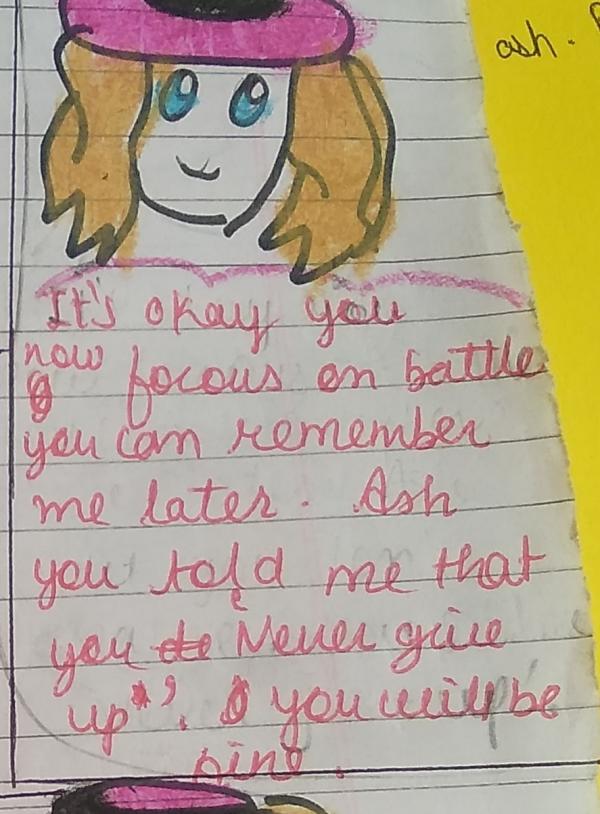 ash.
It's okay you
now focous on battle
you can remember
me later. Ash
you told me that
you Never give
up". you will be